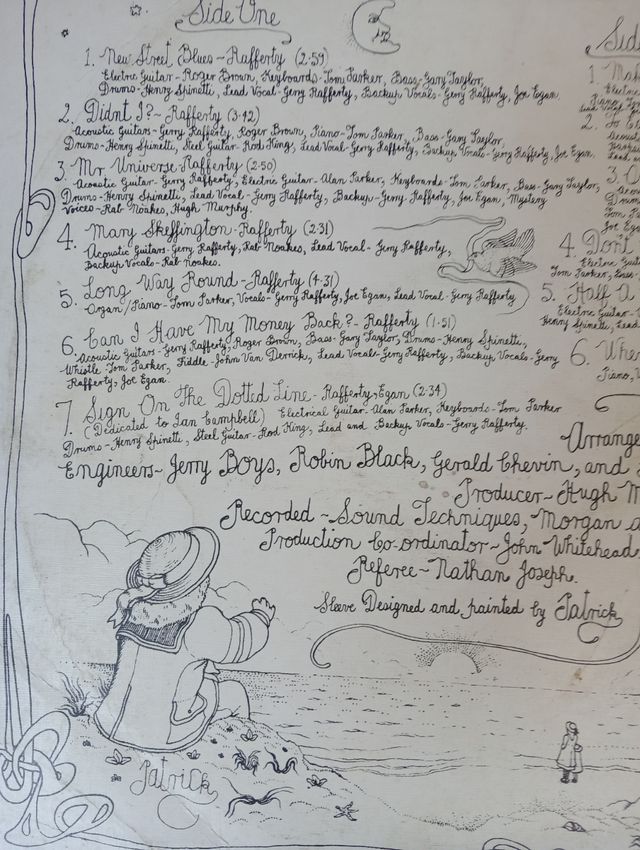 Side One
1. New Street Blues ~ Rafferty (2·59)
Electric Guitar - Roger Brown, Keyboards - Tom Parker, Bass - Gary Taylor,
Drums - Henry Spinetti, Lead Vocal - Gerry Rafferty, Backup Vocals - Gerry Rafferty, Joe Egan.
2. Didnt I? ~ Rafferty (3·42)
Acoustic Guitars - Gerry Rafferty, Roger Brown, Piano - Tom Parker, Bass - Gary Taylor
Drums - Henry Spinetti, Steel Guitar - Rod King, Lead Vocal - Gerry Rafferty, Backup Vocals - Gerry Rafferty, Joe Egan.
3. Mr. Universe - Rafferty (2·50)
Acoustic Guitar - Gerry Rafferty, Electric Guitar - Alan Parker, Keyboards - Tom Parker, Bass - Gary Taylor,
Drums - Henry Spinetti, Lead Vocal - Gerry Rafferty, Backup - Gerry Rafferty, Joe Egan, Mystery
Voices - Rab Noakes, Hugh Murphy.
4. Mary Skeffington - Rafferty (2·31)
Acoustic Guitars - Gerry Rafferty, Rab Noakes, Lead Vocal - Gerry Rafferty,
Backup Vocals - Rab Noakes.
5. Long Way Round - Rafferty (4·31)
Organ/Piano - Tom Parker, Vocals - Gerry Rafferty, Joe Egan, Lead Vocal - Gerry Rafferty
6. Can I Have My Money Back? - Rafferty (1·51)
Acoustic Guitars - Gerry Rafferty, Roger Brown, Bass - Gary Taylor, Drums - Henry Spinetti,
Whistle Tom Parker, Fiddle - John Van Derrick, Lead Vocals - Gerry Rafferty, Backup Vocals - Gerry
Rafferty, Joe Egan.
7. Sign On The Dotted Line - Rafferty, Egan (2·34)
(Dedicated to Ian Campbell) Electrical Guitar - Alan Parker, Keyboards - Tom Parker
Drums - Henry Spinetti, Steel Guitar - Rod King, Lead and Backup Vocals - Gerry Rafferty.
Engineers ~ Jerry Boys, Robin Black, Gerald Chevin, and
Producer ~ Hugh M
Recorded ~ Sound Techniques, Morgan a
Production Co-ordinator ~ John Whitehead
Referee ~ Nathan Joseph.
Sleeve Designed and painted by Patrick
Patrick
Side
1.
Electric
Piano
2.
Acoust
Lead
3.
Drums
Tom
Joe Eg
4. Dont
Electric Gui
Tom Parker, Bass -
5. Half A
Electric Guitar -
Henry Spinetti, Lead
6. Whe
Piano,
Arrange